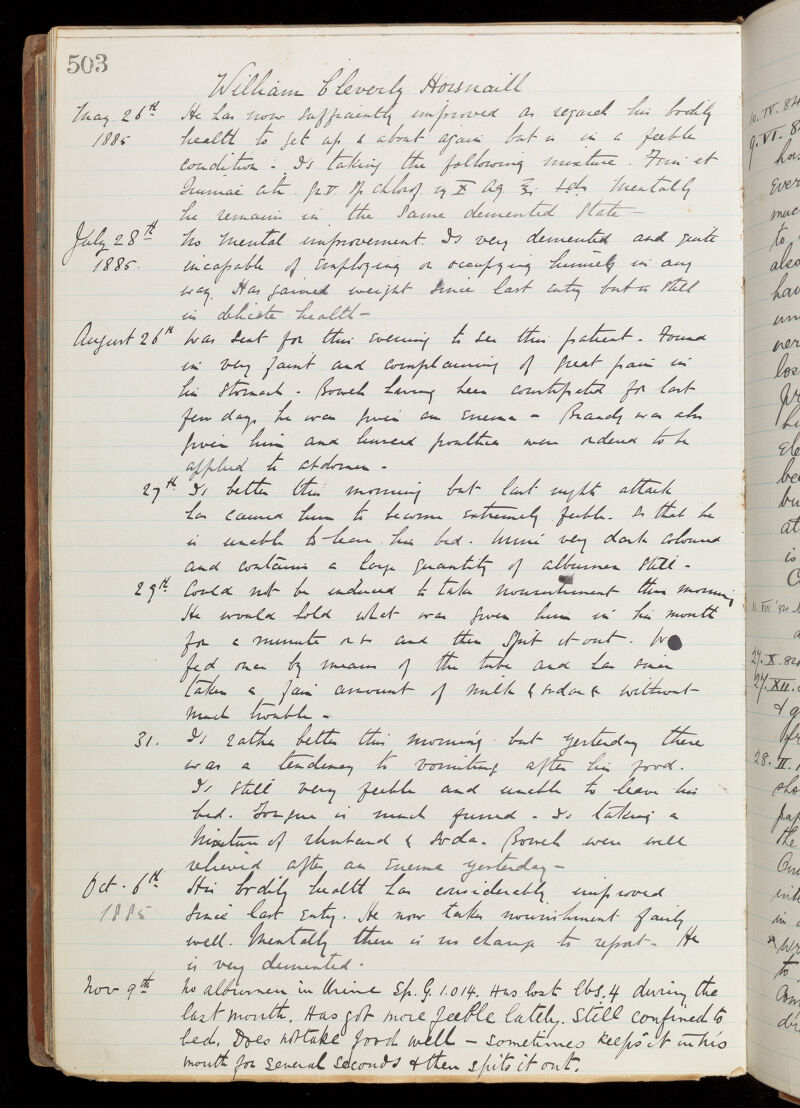 503
William Cleverly Horsnaill
May 26th He has now sufficiently improved as regards his bodily
1885 health to get up & about again but is in a feeble
condition. Is taking the following mixture. Ferri et
Ammoniae cit. gr V Sp chlorof. m X Aq ℥i tds Mentally
he remains in the same demented state —
July 28th No mental improvement. Is very demented and quite
1885. incapable of employing or occupying himself in any
way. Has gained weight since last entry but is still
in delicate health —
August 26th Was sent for this evening to see this patient. Found
in very faint and complaining of great pain in
his stomach. Bowels having been constipated for last
few days he was given an enema — Brandy was also
given him and linseed poultices were ordered to be
applied to abdomen.
27th Is better this morning but last nights attack
has caused him to become extremely feeble. So that he
is unable to leave his bed. Urine very dark coloured
and contains a large quantity of albumen still.
29th Could not be induced to take nourishment this morning
He would hold what was given him in his mouth
for a minute or so and then spit it out. W
fed once by means of the tube and has since
taken a fair amount of milk & soda & without
much trouble.
31. Is rather better this morning but yesterday there
was a tendency to vomiting after his food.
Is still very feeble and unable to leave his
bed. Tongue is much furred. Is taking a
Mixture of rhubarb & soda. Bowels were well
relieved after an enema yesterday —
Oct. 6th His bodily health has considerably improved
1885 since last entry. He now takes nourishment fairly
well. Mentally there is no change to report. He
is very demented.
Nov 9th No albumen in Urine Sp. G. 1.014. Has lost lbs. 4 during the
last month. Has got more feeble lately. Still confined to
bed. Does not take food well — sometimes keeps it in his
mouth for several seconds & then spits it out.